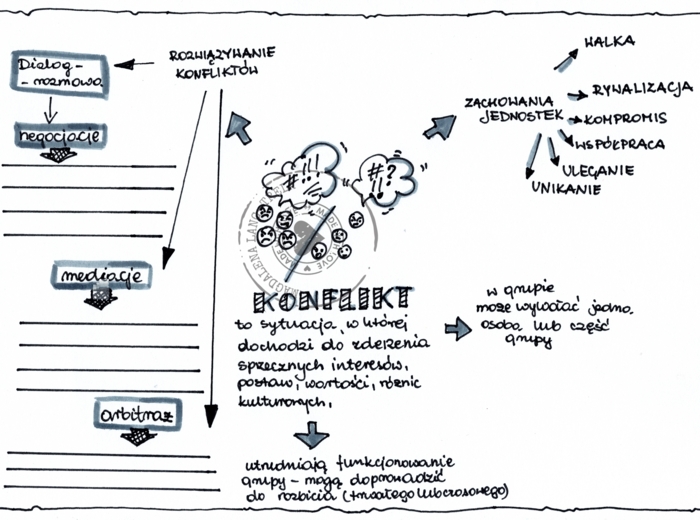 ROZWIĄZYWANIE
KONFLIKTÓW
Dialog-
- rozmowa
negocjacje
mediacje
arbitraż
ZACHOWANIA
JEDNOSTEK
WALKA
RYWALIZACJA
KOMPROMIS
WSPÓŁPRACA
ULEGANIE
UNIKANIE
#!!!
#?
!!
KONFLIKT
to sytuacja, w której
dochodzi do zderzenia
sprzecznych interesów,
postaw, wartości, różnic
kulturowych,
w grupie
może wywołać jedna
osoba lub część
grupy
utrudniają funkcjonowanie
grupy - mogą doprowadzić
do rozbicia (trwałego lub czasowego)
MAGDALENA
MADE
LOVE